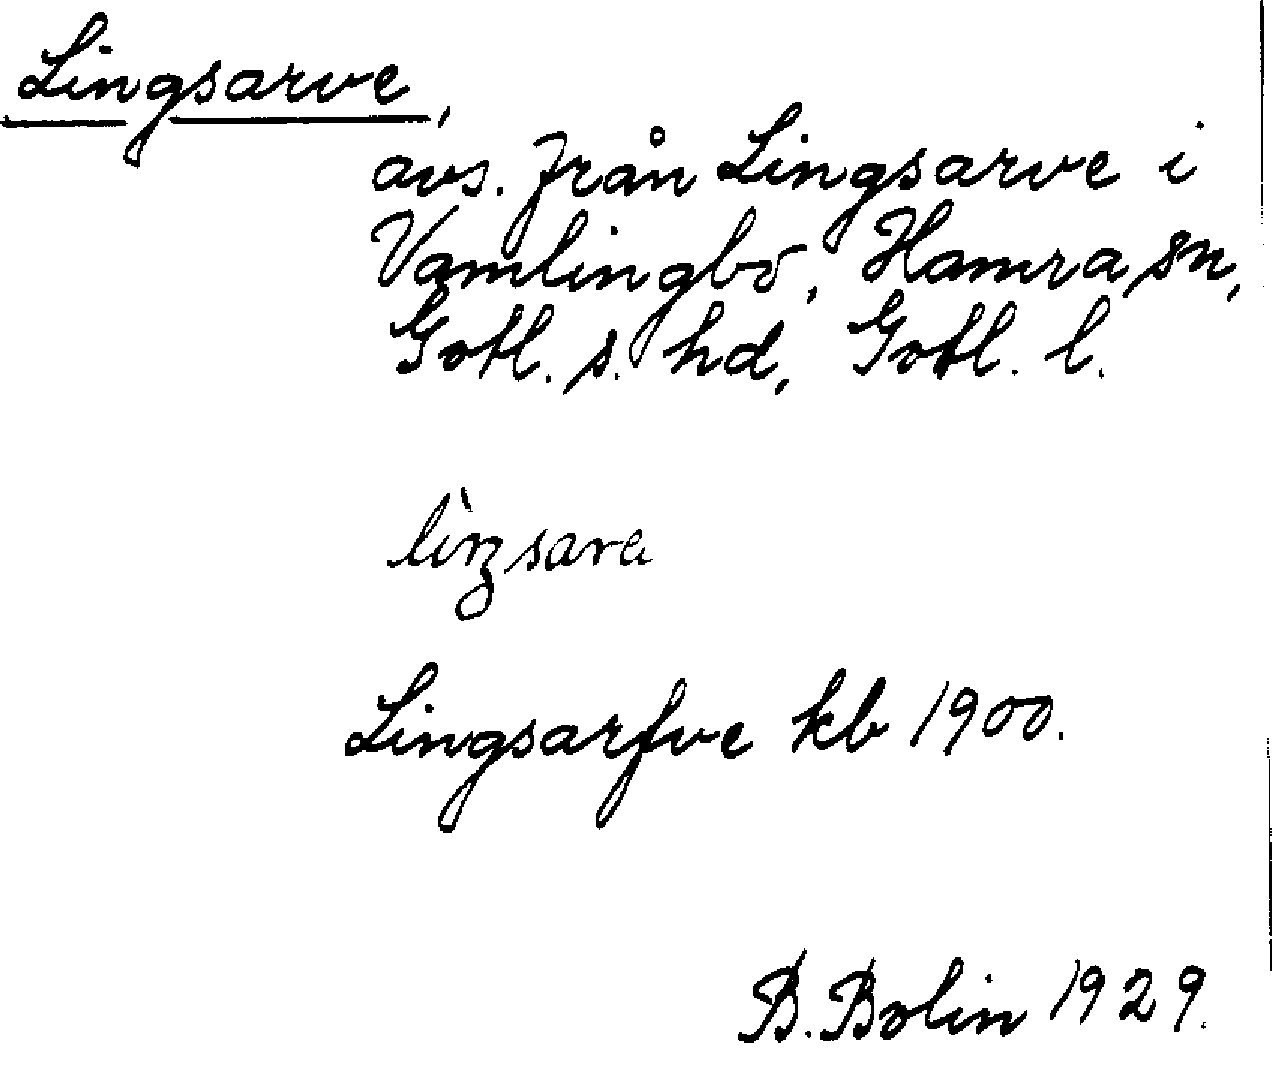 Lingsarve,
avs. från Lingsarve i
Vamlingbo, Hamra sn,
Gotl. s. hd, Gotl. l.
Lingsarfve kb 1900.
B. Bolin 1929.